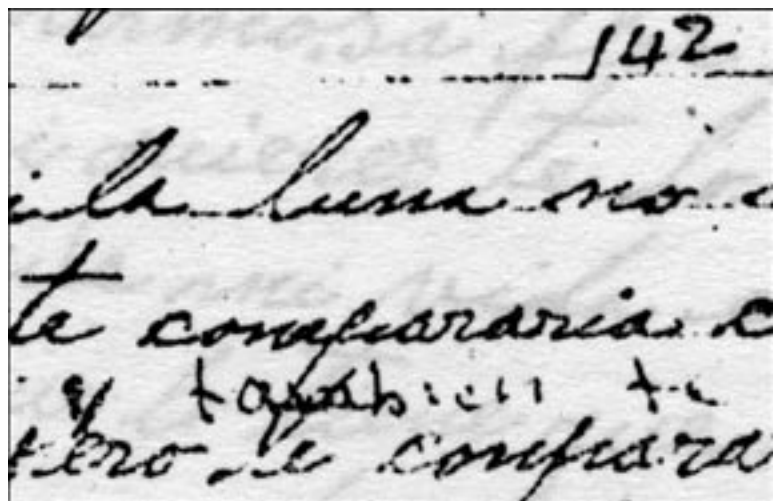 142
i la luna no
te compararia c
y tambien te
pero te compara